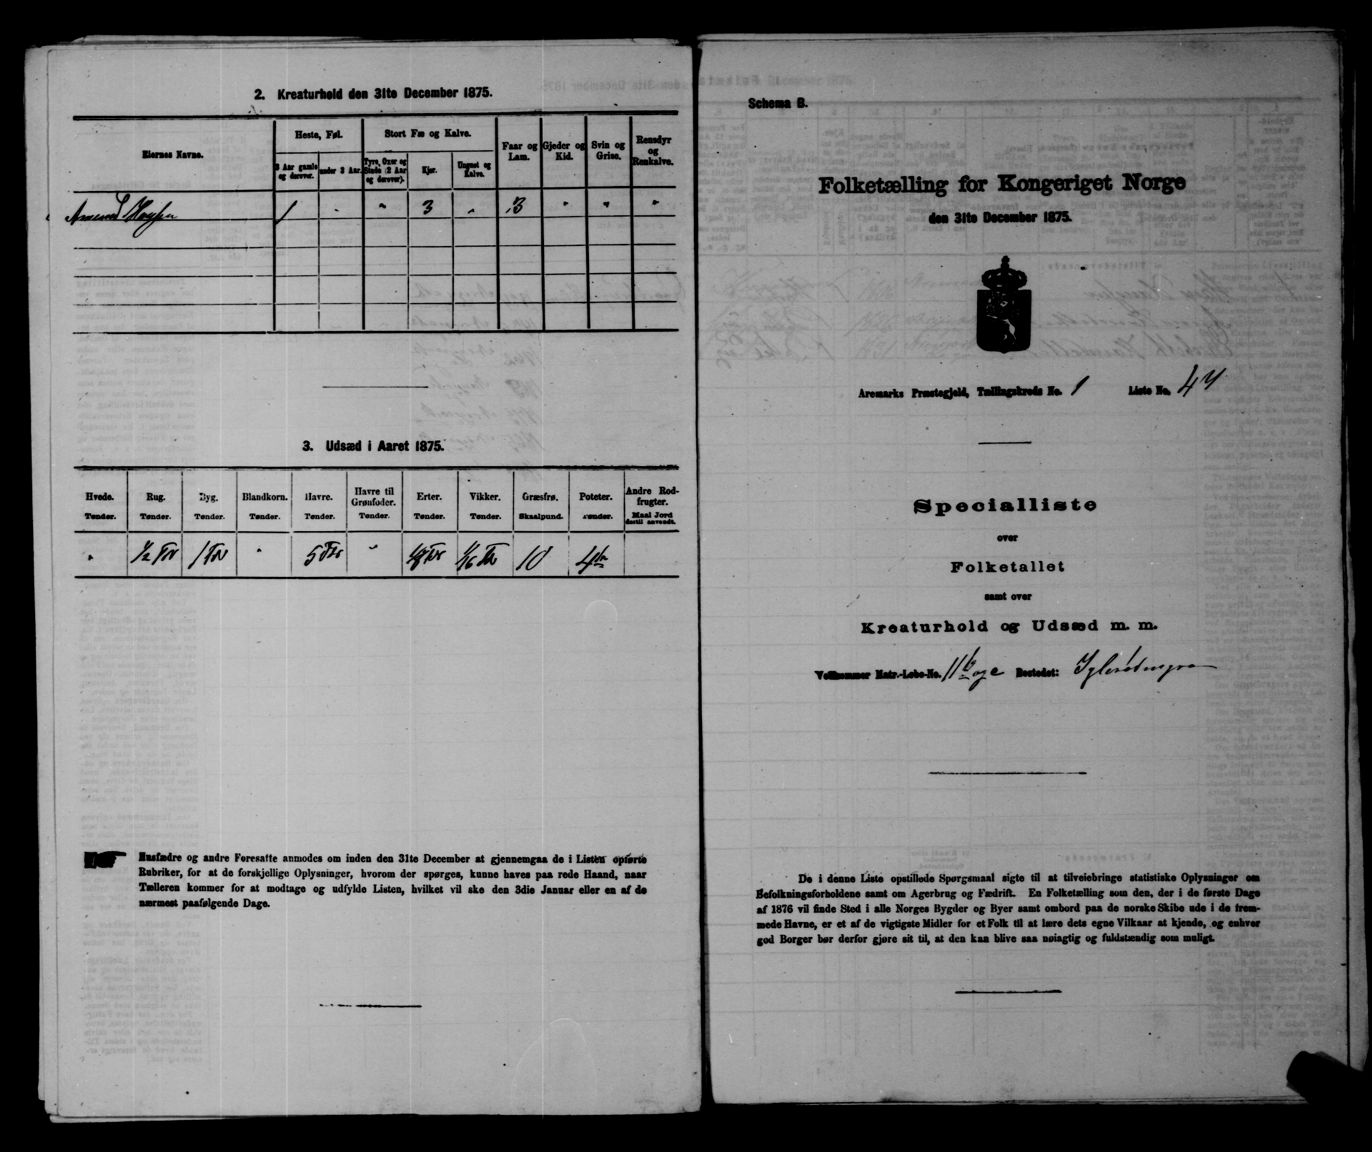 2. Kreaturhold den 31te December 1875.
Eiernes Navne.
Heste, Føl.
Stort Fæ og Kalve.
Faar og Lam.
Gjeder og Kid.
Svin og Grise.
Rensdyr og Renkalve.
3 Aar gamle og derover.
under 3 Aar.
Tyre, Oxer og Stude (2 Aar og derover).
Kjør.
Ungnøt og Kalve.
1 - " 3 " 3 " " "
3. Udsæd i Aaret 1875.
Hvede. Rug. Byg. Blandkorn. Havre. Havre til Grønfoder. Erter. Vikker. Græsfrø. Poteter. Andre Rodfrugter.
Tønder. Tønder. Tønder. Tønder. Tønder. Tønder. Tønder. Tønder. Skaalpund. Tønder. Maal Jord dertil anvendt.
" 1/2 Tdr 1 Tdr " 5 Tdr " 1/8 Tdr 1/16 Td 10 4
Husfædre og andre Foresatte anmodes om inden den 31te December at gjennemgaa de i Listen opførte
Rubriker, for at de forskjellige Oplysninger, hvorom der spørges, kunne haves paa rede Haand, naar
Tælleren kommer for at modtage og udfylde Listen, hvilket vil ske den 3die Januar eller en af de
nærmest paafølgende Dage.
Schema B.
Folketælling for Kongeriget Norge
den 31te December 1875.
Aremarks Præstegjeld, Tællingskreds No. 1 Liste No. 44
Specialliste
over
Folketallet
samt over
Kreaturhold og Udsæd m. m.
Vedkommer Matr.-Løbe-No. 11 b og c Bostedet:
De i denne Liste opstillede Spørgsmaal sigte til at tilveiebringe statistiske Oplysninger om
Befolkningsforholdene samt om Agerbrug og Fædrift. En Folketælling som den, der i de første Dage
af 1876 vil finde Sted i alle Norges Bygder og Byer samt ombord paa de norske Skibe ude i de frem-
mede Havne, er et af de vigtigste Midler for et Folk til at lære dets egne Vilkaar at kjende, og enhver
god Borger bør derfor gjøre sit til, at den kan blive saa nøiagtig og fuldstændig som muligt.